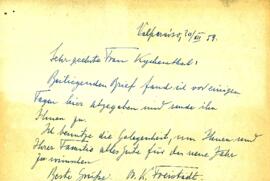 Valparaiso, 20/XII 59.
Sehr geehrte Frau Kychenthal:
Beiliegenden Brief fand ich vor einigen
Tagen hier abgegeben und sende ihn
Ihnen zu.
Ich benütze die Gelegenheit, um Ihnen und
Ihrer Familie alles Gute für das neue Jahr
zu wünschen
Beste Grüße